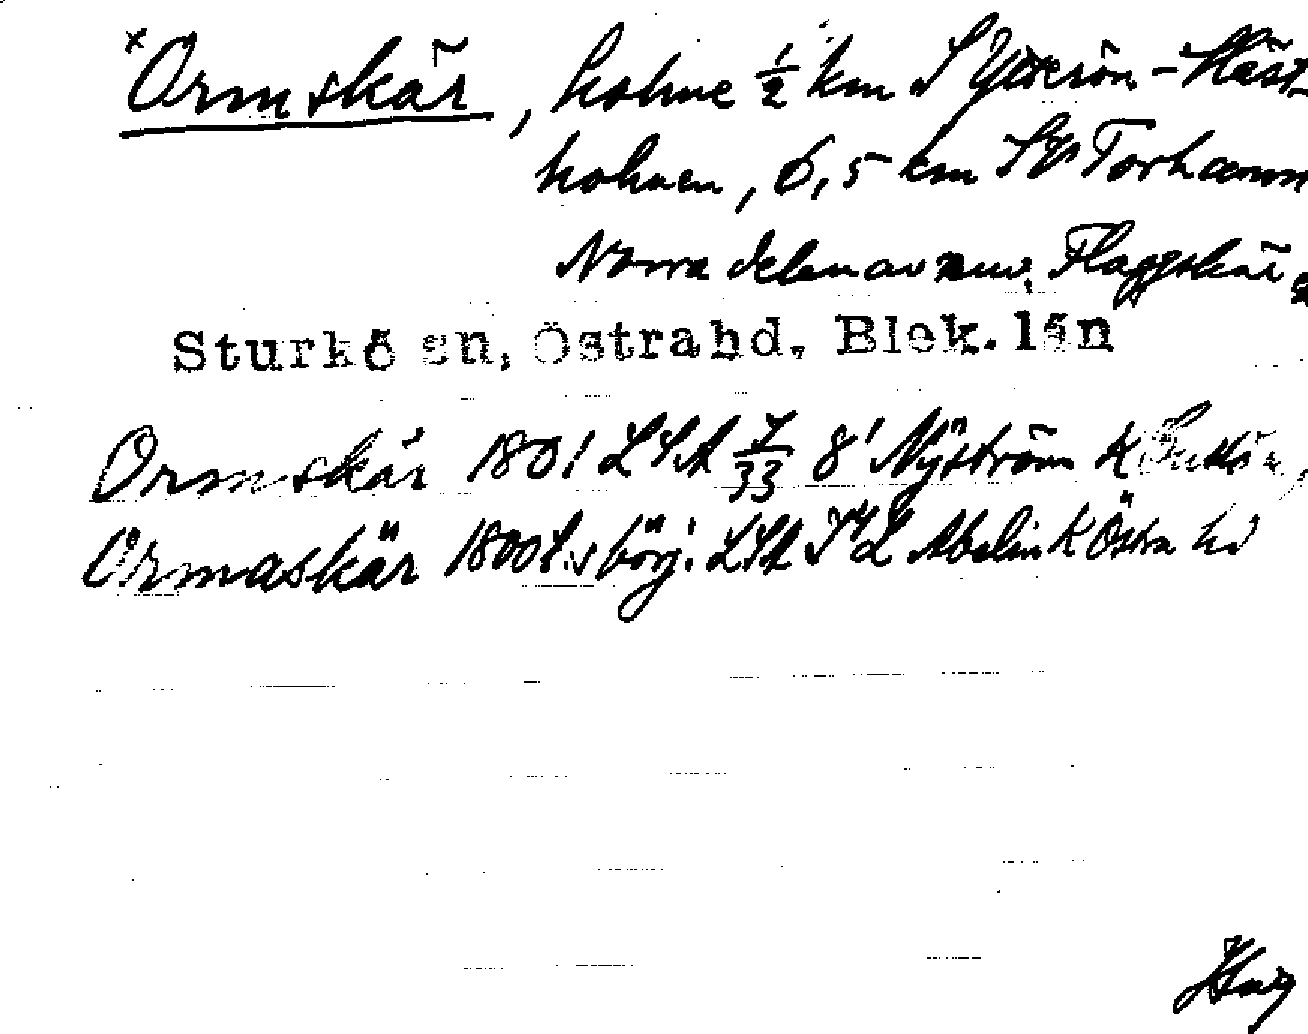 × Ormskär, holme ½ km S Ytterön-Häst-
holmen, 6,5 km SV Torhamn
Norra delen av nuv. Flaggskär
Sturkö sn, Östra hd. Blek. län
Ormskär 1801 LSA 8' Nyström K
Ormaskär 1800t.s börj. LSA Abelin K Östra hd